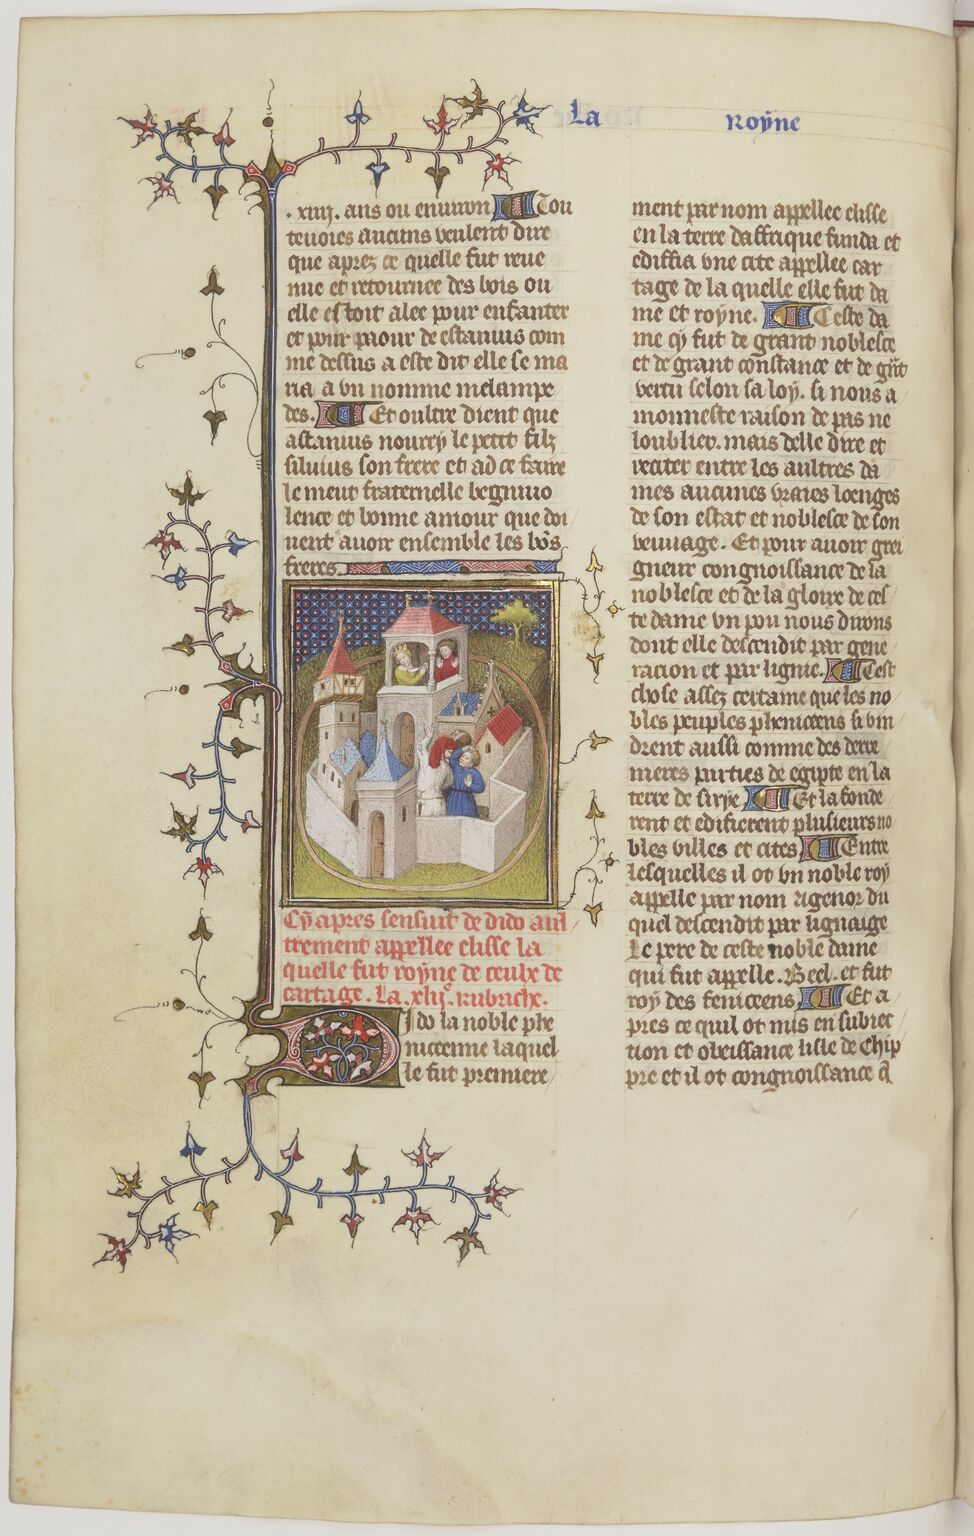 La Royne
.xiiij. ans ou environ Tou
tevoies aucuns veulent dire
que aprez ce quelle fut reve
nue et retournee des bois ou
elle estoit alee pour enfanter
et pour paour de astanius com
me dessus a este dit elle se ma
ria a un nomme melampe
des. Et oultre dient que
astanius nourry le petit filz
silvius son frere et ad ce faire
le meut fraternelle begnivo
lence et bonne amour que doi
vent avoir ensemble les bōs
freres.
Cy apres sensuit de dido aul
trement appellee elisse la
quelle fut royne de ceulx de
cartage. La .xlij.e rubriche.
Dido la noble phe
nicienne laquel
le fut premiere
ment par nom appellee elisse
en la terre daffrique funda et
ediffia une cite appellee car
tage de la quelle elle fut da
me et royne. Ceste da
me cy fut de grant noblesce
et de grant constance et de gr̄t
vertu selon sa loy. si nous a
monneste raison de pas ne
loublier. mais delle dire et
reciter entre les aultres da
mes aucunes vraies loenges
de son estat et noblesce de son
veuvage. Et pour avoir grei
gneur congnoissance de la
noblesce et de la gloire de ces
te dame un pou nous dirons
dont elle descendit par gene
racion et par lignie. Cest
chose assez certaine que les no
bles peuples pheniciens si vin
drent aussi comme des derre
nieres parties de egipte en la
terre de sirye Et la fonde
rent et edifierent plusieurs no
bles villes et cites Entre
lesquelles il ot un noble roy
appelle par nom agenor du
quel descendit par lignaige
Le pere de ceste noble dame
qui fut appelle. Beel. et fut
roy des feniciens Et a
pres ce quil ot mis en subiec
tion et obeissance lisle de Chip
pre et il ot congnoissance q̄